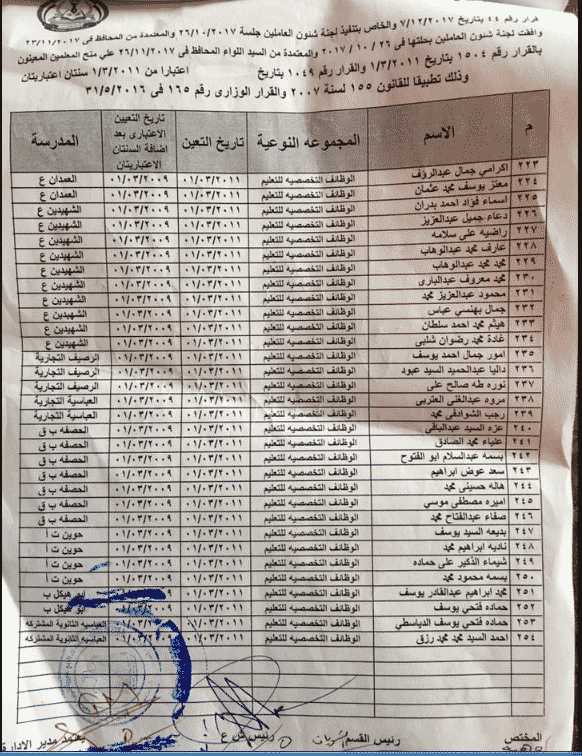 قرار رقم ٤٤ بتاريخ ٧/١٢/٢٠١٧ والخاص بتنفيذ لجنة شئون العاملين جلسة ٢٦/١٠/٢٠١٧ والمعتمدة من المحافظ فى ٢٣/١١/٢٠١٧
وافقت لجنة شئون العاملين بحلتها فى ٢٦ / ١٠ / ٢٠١٧ والمعتمدة من السيد اللواء المحافظ فى ٢٦/١١/٢٠١٧ علي منح المعلمين المعينون
بالقرار رقم ١٥٠٤ بتاريخ ١/٣/٢٠١١ والقرار رقم ١٠٤٩ بتاريخ اعتبارا من ١/٣/٢٠١١ سنتان اعتباريتان
وذلك تطبيقا للقانون ١٥٥ لسنة ٢٠٠٧ والقرار الوزارى رقم ١٦٥ فى ٣١/٥/٢٠١٦
م الاسم المجموعه النوعية تاريخ التعين تاريخ التعيين الاعتبارى بعد اضافة السنتان الاعتباريتان المدرسة
٢٢٣ اكرامي جمال عبدالرؤف الوظائف التخصصيه للتعليم ٠١/٠٣/٢٠١١ ٠١/٠٣/٢٠٠٩ العمدان ع
٢٢٤ معتز يوسف محمد عثمان الوظائف التخصصيه للتعليم ٠١/٠٣/٢٠١١ ٠١/٠٣/٢٠٠٩ العمدان ع
٢٢٥ اسماء فؤاد احمد بدران الوظائف التخصصيه للتعليم ٠١/٠٣/٢٠١١ ٠١/٠٣/٢٠٠٩ الشهيدين ع
٢٢٦ دعاء جميل عبدالعزيز الوظائف التخصصيه للتعليم ٠١/٠٣/٢٠١١ ٠١/٠٣/٢٠٠٩ الشهيدين ع
٢٢٧ راضيه على سلامه الوظائف التخصصيه للتعليم ٠١/٠٣/٢٠١١ ٠١/٠٣/٢٠٠٩ الشهيدين ع
٢٢٨ عارف محمد عبدالوهاب الوظائف التخصصيه للتعليم ٠١/٠٣/٢٠١١ ٠١/٠٣/٢٠٠٩ الشهيدين ع
٢٢٩ محمد محمد عبدالوهاب الوظائف التخصصيه للتعليم ٠١/٠٣/٢٠١١ ٠١/٠٣/٢٠٠٩ الشهيدين ع
٢٣٠ محمد معروف عبدالبارى الوظائف التخصصيه للتعليم ٠١/٠٣/٢٠١١ ٠١/٠٣/٢٠٠٩ الشهيدين ع
٢٣١ محمود عبدالعزيز محمد الوظائف التخصصيه للتعليم ٠١/٠٣/٢٠١١ ٠١/٠٣/٢٠٠٩ الشهيدين ع
٢٣٢ جمال بهنسي عباس الوظائف التخصصيه للتعليم ٠١/٠٣/٢٠١١ ٠١/٠٣/٢٠٠٩ الشهيدين ع
٢٣٣ هيثم محمد احمد سلطان الوظائف التخصصيه للتعليم ٠١/٠٣/٢٠١١ ٠١/٠٣/٢٠٠٩ الشهيدين ع
٢٣٤ غادة محمد رضوان شلبى الوظائف التخصصيه للتعليم ٠١/٠٣/٢٠١١ ٠١/٠٣/٢٠٠٩ الشهيدين ع
٢٣٥ امور جمال احمد يوسف الوظائف التخصصيه للتعليم ٠١/٠٣/٢٠١١ ٠١/٠٣/٢٠٠٩ الرصيف التجارية
٢٣٦ داليا عبدالحميد السيد عبود الوظائف التخصصيه للتعليم ٠١/٠٣/٢٠١١ ٠١/٠٣/٢٠٠٩ الرصيف التجارية
٢٣٧ نوره طه صالح على الوظائف التخصصيه للتعليم ٠١/٠٣/٢٠١١ ٠١/٠٣/٢٠٠٩ الرصيف التجارية
٢٣٨ مروه عبدالغنى العتربى الوظائف التخصصيه للتعليم ٠١/٠٣/٢٠١١ ٠١/٠٣/٢٠٠٩ العباسية التجارية
٢٣٩ رجب الشوادفى محمد الوظائف التخصصيه للتعليم ٠١/٠٣/٢٠١١ ٠١/٠٣/٢٠٠٩ العباسية التجارية
٢٤٠ عزه السيد عبدالباقى الوظائف التخصصيه للتعليم ٠١/٠٣/٢٠١١ ٠١/٠٣/٢٠٠٩ الحصفه ب ق
٢٤١ علياء محمد الصادق الوظائف التخصصيه للتعليم ٠١/٠٣/٢٠١١ ٠١/٠٣/٢٠٠٩ الحصفه ب ق
٢٤٢ بسمه عبدالسلام ابو الفتوح الوظائف التخصصيه للتعليم ٠١/٠٣/٢٠١١ ٠١/٠٣/٢٠٠٩ الحصفه ب ق
٢٤٣ سعد عوض ابراهيم الوظائف التخصصيه للتعليم ٠١/٠٣/٢٠١١ ٠١/٠٣/٢٠٠٩ الحصفه ب ق
٢٤٤ هاله حسينى محمد الوظائف التخصصيه للتعليم ٠١/٠٣/٢٠١١ ٠١/٠٣/٢٠٠٩ الحصفه ب ق
٢٤٥ اميره مصطفى موسي الوظائف التخصصيه للتعليم ٠١/٠٣/٢٠١١ ٠١/٠٣/٢٠٠٩ الحصفه ب ق
٢٤٦ صفاء عبدالفتاح محمد الوظائف التخصصيه للتعليم ٠١/٠٣/٢٠١١ ٠١/٠٣/٢٠٠٩ الحصفه ب ق
٢٤٧ بديعه السيد يوسف الوظائف التخصصيه للتعليم ٠١/٠٣/٢٠١١ ٠١/٠٣/٢٠٠٩ حوين ت أ
٢٤٨ ناديه ابراهيم محمد الوظائف التخصصيه للتعليم ٠١/٠٣/٢٠١١ ٠١/٠٣/٢٠٠٩ حوين ت أ
٢٤٩ شيماء الذكير على حماده الوظائف التخصصيه للتعليم ٠١/٠٣/٢٠١١ ٠١/٠٣/٢٠٠٩ حوين ت أ
٢٥٠ بسمه محمود محمد الوظائف التخصصيه للتعليم ٠١/٠٣/٢٠١١ ٠١/٠٣/٢٠٠٩ حوين ت أ
٢٥١ محمد ابراهيم عبدالقادر يوسف الوظائف التخصصيه للتعليم ٠١/٠٣/٢٠١١ ٠١/٠٣/٢٠٠٩ هيكل ب
٢٥٢ حماده فتحي يوسف الوظائف التخصصيه للتعليم ٠١/٠٣/٢٠١١ هيكل ب
٢٥٣ حماده فتحي يوسف الدياسطي الوظائف التخصصيه للتعليم ٠١/٠٣/٢٠١١ العباسيه الثانوية المشتركه
٢٥٤ احمد السيد محمد محمد رزق الوظائف التخصصيه للتعليم ٠١/٠٣/٢٠١١ العباسيه الثانوية المشتركه
المختص رئيس القسم رئيس ش ع يعتمد مدير الادارة